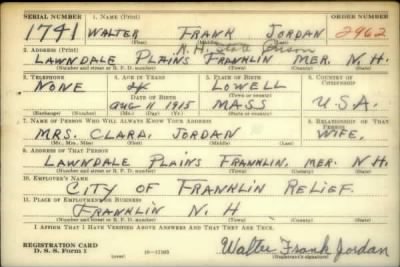 SERIAL NUMBER 1. NAME (Print) ORDER NUMBER
1741 WALTER FRANK JORDAN 2962
(First) (Middle) (Last)
N.H. State Prison
2. ADDRESS (Print)
LAWNDALE PLAINS FRANKLIN MER. N.H.
(Number and street or R. F. D. number) (Town) (County) (State)
3. TELEPHONE 4. AGE IN YEARS 5. PLACE OF BIRTH 6. COUNTRY OF CITIZENSHIP
NONE LOWELL
DATE OF BIRTH (Town or county)
AUG 11 1915 MASS U.S.A.
(Exchange) (Number) (Mo.) (Day) (Yr.) (State or country)
7. NAME OF PERSON WHO WILL ALWAYS KNOW YOUR ADDRESS 8. RELATIONSHIP OF THAT PERSON
MRS. CLARA JORDAN WIFE,
(Mr., Mrs., Miss) (First) (Middle) (Last)
9. ADDRESS OF THAT PERSON
LAWNDALE PLAINS FRANKLIN, MER. N.H.
(Number and street or R. F. D. number) (Town) (County) (State)
10. EMPLOYER'S NAME
CITY OF FRANKLIN RELIEF.
11. PLACE OF EMPLOYMENT OR BUSINESS
FRANKLIN N. H
(Number and street or R. F. D. number) (Town) (County) (State)
I AFFIRM THAT I HAVE VERIFIED ABOVE ANSWERS AND THAT THEY ARE TRUE.
REGISTRATION CARD
D. S. S. Form 1 (over) Walter Frank Jordan
(Registrant's signature)